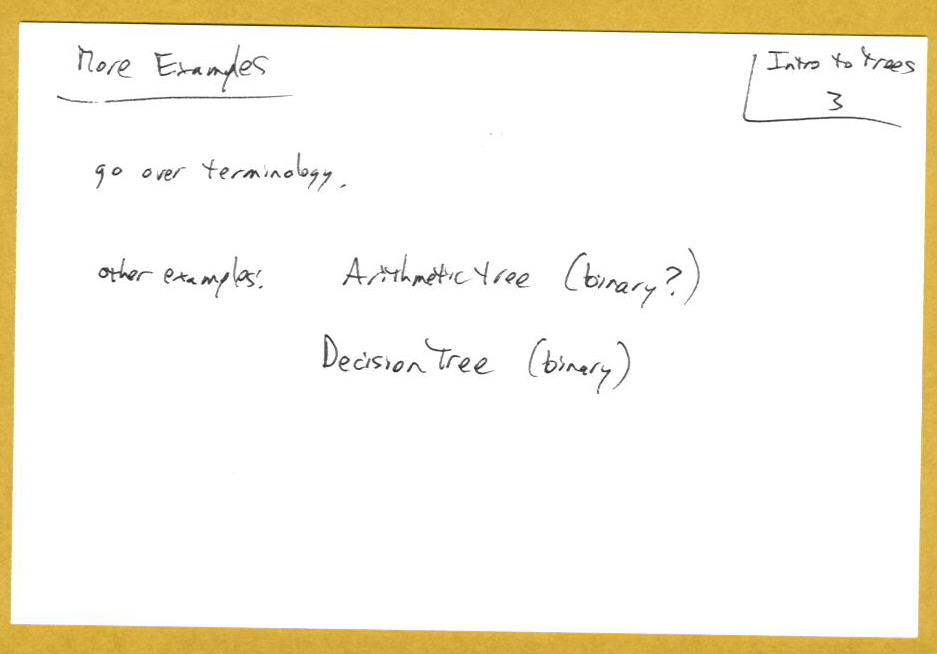 More Examples
Intro to trees
3
go over terminology.
other examples: Arithmetic tree (binary?)
Decision Tree (binary)